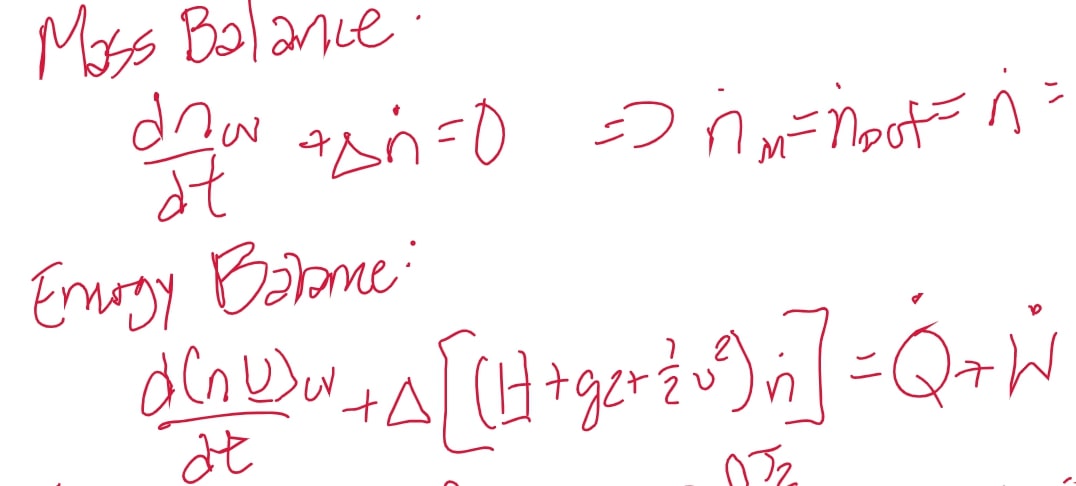 Mass Balance:
dn_cv/dt + Δṅ = 0 ⇒ ṅ_in = ṅ_out = ṅ =
Energy Balance:
d(nU)_cv/dt + Δ[(H + gz + 1/2 v²) ṅ] = Q̇ + Ẇ